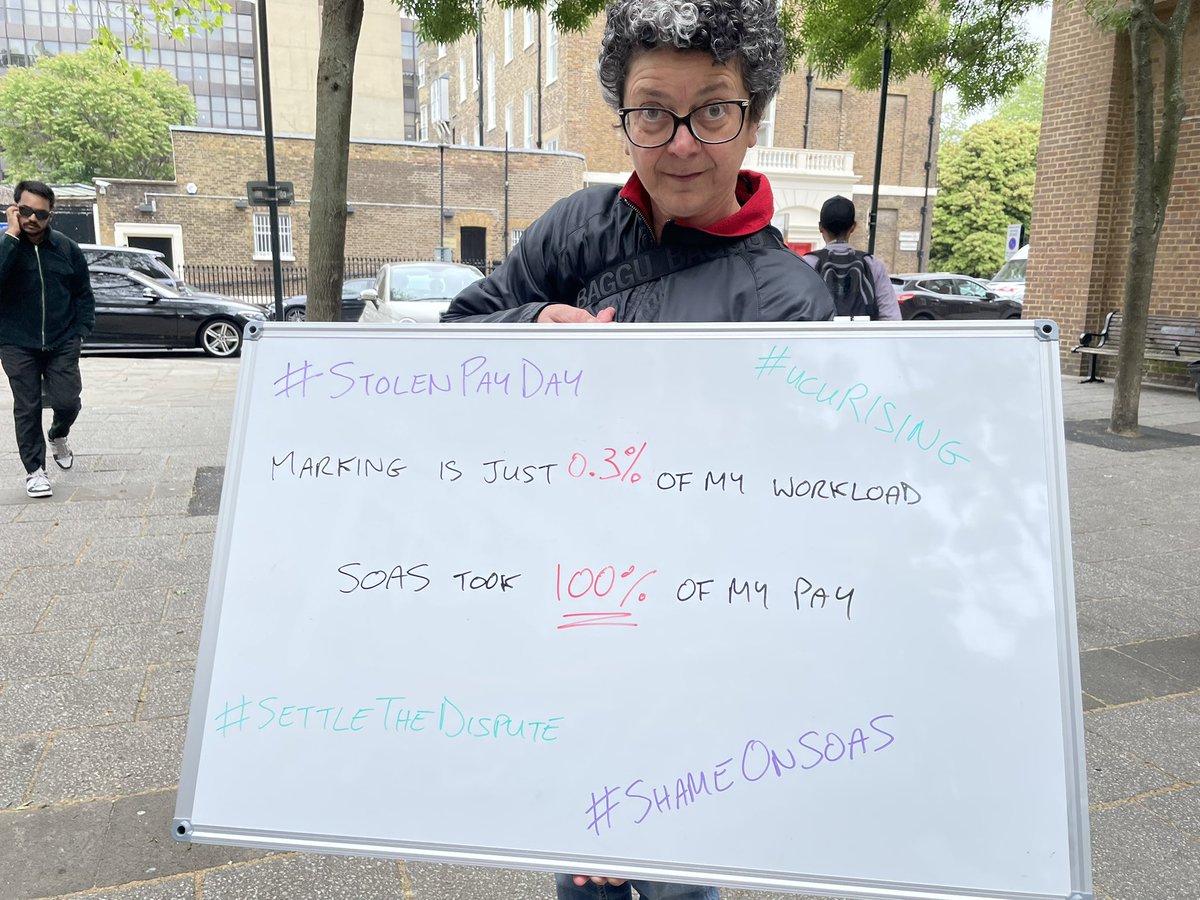 BAGGU BA
#STOLENPAYDAY
#UCURISING
MARKING IS JUST 0.3% OF MY WORKLOAD
SOAS TOOK 100% OF MY PAY
#SETTLETHEDISPUTE
#SHAMEONSOAS